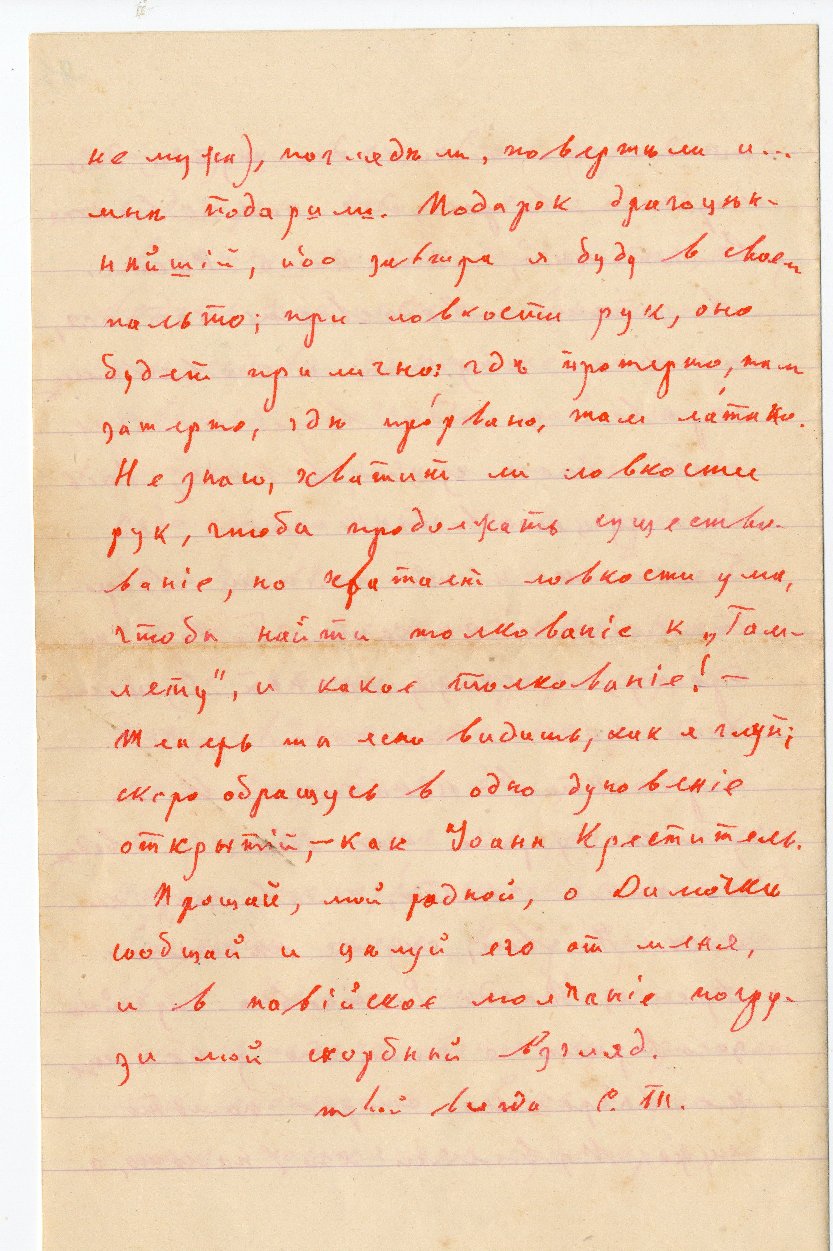 не мужа), поглядѣли, повертѣли и...
мнѣ подарили. Подарок драгоцѣн-
нѣйшій, ибо завтра я буду в своем
пальто; при ловкости рук, оно
будет прилично: гдѣ протерто, там
затерто, гдѣ про́рвано, там ла́тано.
Не знаю, хватит ли ловкости
рук, чтобы продолжать существо-
ваніе, но хватает ловкости ума,
чтобы найти толкованіе к „Гам-
лету", и какое толкованіе! —
Теперь ты ясно видишь, как я глуп;
скоро обращусь в одно дуновеніе
открытій, — как Иоанн Креститель.
Прощай, мой родной, о Димочке
сообщай и цѣлуй его от меня,
и в павійское молчаніе погру-
зи мой скорбный взгляд.
твой всегда С. Т.